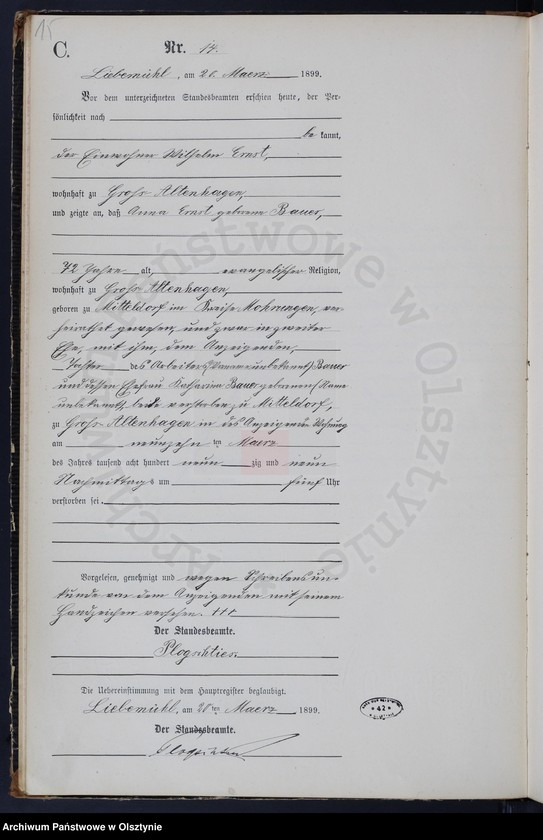 15
C.
Nr. 14.
Liebemühl, am 20. Maerz 1899.
Vor dem unterzeichneten Standesbeamten erschien heute, der Per-
sönlichkeit nach
be kannt,
der Einwohner Wilhelm Ernst,
wohnhaft zu Groß Altenhagen,
und zeigte an, daß Anna Ernst geborene Bauer,
72 Jahre alt, evangelischer Religion,
wohnhaft zu Groß Altenhagen,
geboren zu Mitteldorf im Kreise Mohrungen, ver-
heirathet gewesen, und zwar in zweiter
Ehe, mit ihm, dem Anzeigenden,
Tochter des Arbeiters (Name unbekannt) Bauer
und dessen Ehefrau Katharina Bauer geborenen (Name
unbekannt), beide verstorben zu Mitteldorf,
zu Groß Altenhagen in des Anzeigenden Wohnung
am neunzehn ten Maerz
des Jahres tausend acht hundert neun zig und neun
Nachmittags um fünf Uhr
verstorben sei.
Vorgelesen, genehmigt und wegen Schreibensun-
kunde von dem Anzeigenden mit seinem
Handzeichen versehen. +++
Der Standesbeamte.
Die Uebereinstimmung mit dem Hauptregister beglaubigt.
Liebemühl, am 20ten Maerz 1899.
Der Standesbeamte.
* 42 *
Archiwum Państwowe w Olsztynie
Archiwum Państwowe w Olsztynie